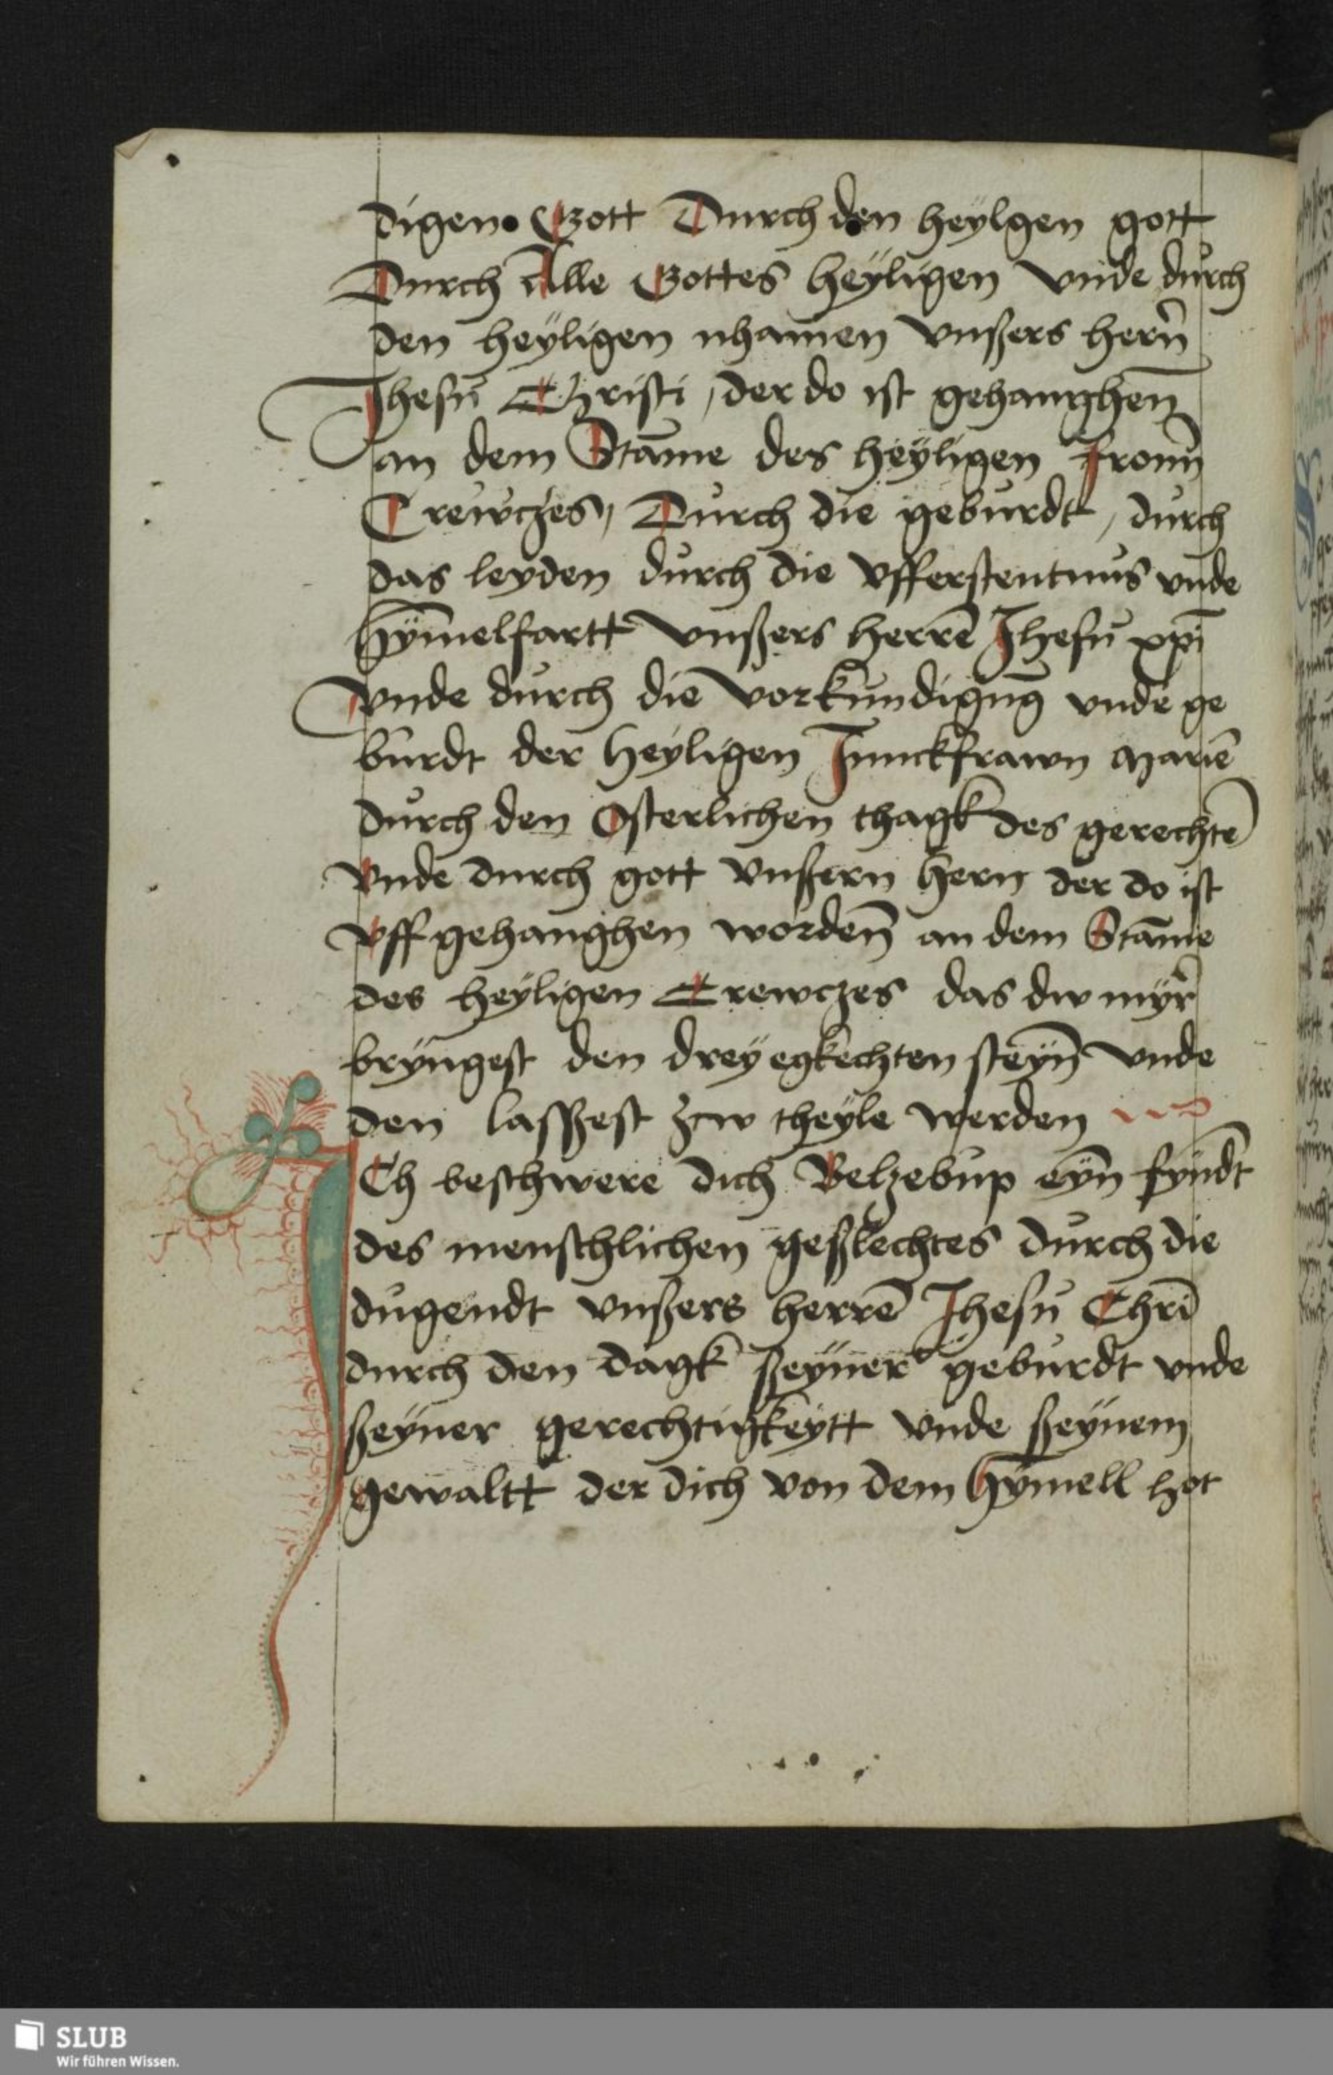 digen. Gott Durch den heylgen gott
Durch Alle Gottes heyligen vnde durch
den heyligen nhamen vnßers herñ
Jhesu Christi, der do ist gehanghen
an dem Stāme des heyligen fronñ
Crewczes, Durch die geburdt, durch
das leyden durch die vfferstentnus vnde
hȳmelfartt vnßers herrē Jhesu xp̄i
vnde durch die vorkundigūg vnde ge
burdt der heyligen Junckfrawn Mariē
durch den Osterlichen thagk des gerechtē
vnde durch gott vnßern hern der do ist
vff gehanghen wordeñ an dem Stāme
des heyligen Crewczes das dw myr
bryngest den dreyegkechten steyñ vnde
den laßßest zcw theyle werden
ICh beschwere dich Belzebup eyñ fyndt
des menschlichen geßlechtes durch die
dugendt vnßers herrē Jhesu Chrī
durch den dagk ßeyner geburdt vnde
ßeyner gerechtigkeytt vnde ßeynem
gewaltt der dich von dem hȳmell hot
SLUB
Wir führen Wissen.